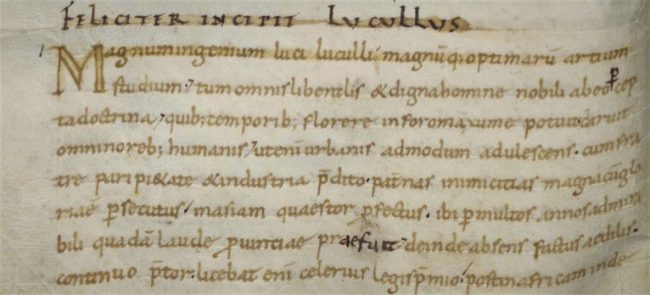 FELICITER INCIPIT LUCULLUS
Magnum ingenium luci luculli magnūq; optimarū artium
studium, tum omnis liberalis & digna homine nobili ab eo p̄cep
ta doctrina, quib; temporib; florere in foro maxume potuit caruit
omnino reb; humanis, ut enī urbanis admodum adulescens. cum fra
tre pari pi&ate & industria p̄dito. pat̄nas inimicitias magna cū glo
riae p̄secutus, in asiam quaestor p̄fectus. ibi p̄ multos annos admira
bili quadā laude p̄vinciae praefuit, deinde absens factus aedilis.
continuo p̄tor. licebat enī celerius legis p̄mio. post in africam inde